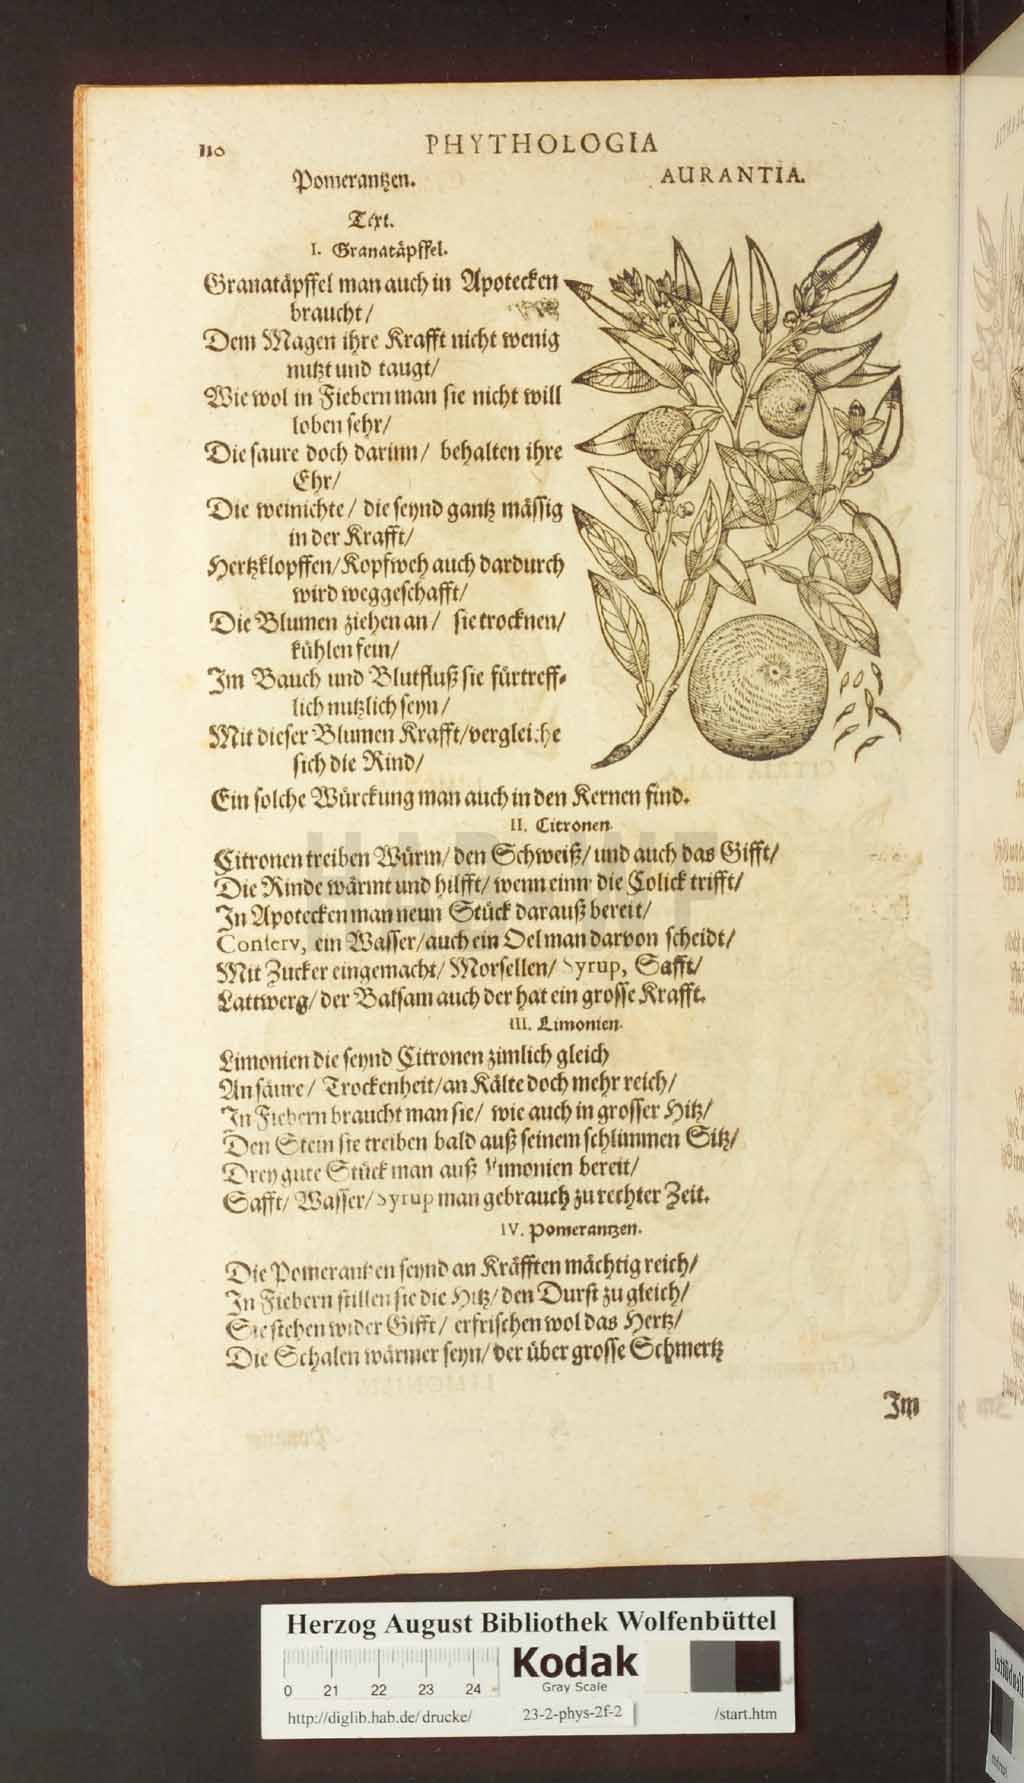 110
PHYTHOLOGIA
Pomerantzen.
AURANTIA.
Text.
I. Granatäpffel.
Granatäpffel man auch in Apotecken
braucht/
Dem Magen ihre Krafft nicht wenig
nutzt und taugt/
Wie wol in Fiebern man sie nicht will
loben sehr/
Die saure doch darinn/ behalten ihre
Ehr/
Die weinichte/ die seynd gantz mässig
in der Krafft/
Hertzklopffen/Kopfweh auch dardurch
wird weggeschafft/
Die Blumen ziehen an/ sie trocknen/
kühlen fein/
Im Bauch und Blutfluß sie fürtreff-
lich nutzlich seyn/
Mit dieser Blumen Krafft/vergleiche
sich die Rind/
Ein solche Würckung man auch in den Kernen find.
II. Citronen.
Citronen treiben Würm/ den Schweiß/ und auch das Gifft/
Die Rinde wärmt und hilfft/ wenn einn die Colick trifft/
In Apotecken man neun Stück darauß bereit/
Conserv, ein Wasser/auch ein Oel man darvon scheidt/
Mit Zucker eingemacht/ Morsellen/ Syrup, Safft/
Lattwerg/ der Balsam auch der hat ein grosse Krafft.
III. Limonien.
Limonien die seynd Citronen zimlich gleich
An säure/ Trockenheit/an Kälte doch mehr reich/
In Fiebern braucht man sie/ wie auch in grosser Hitz/
Den Stein sie treiben bald auß seinem schlimmen Sitz/
Drey gute Stück man auß Limonien bereit/
Safft/ Wasser/Syrup man gebrauch zu rechter Zeit.
IV. Pomerantzen.
Die Pomerantzen seynd an Kräfften mächtig reich/
In Fiebern stillen sie die Hitz/ den Durst zu gleich/
Sie stehen wider Gifft/ erfrischen wol das Hertz/
Die Schalen wärmer seyn/ der über grosse Schmertz
Im
Herzog August Bibliothek Wolfenbüttel
Kodak
Gray Scale
0 21 22 23 24
http://diglib.hab.de/drucke/
23-2-phys-2f-2
/start.htm